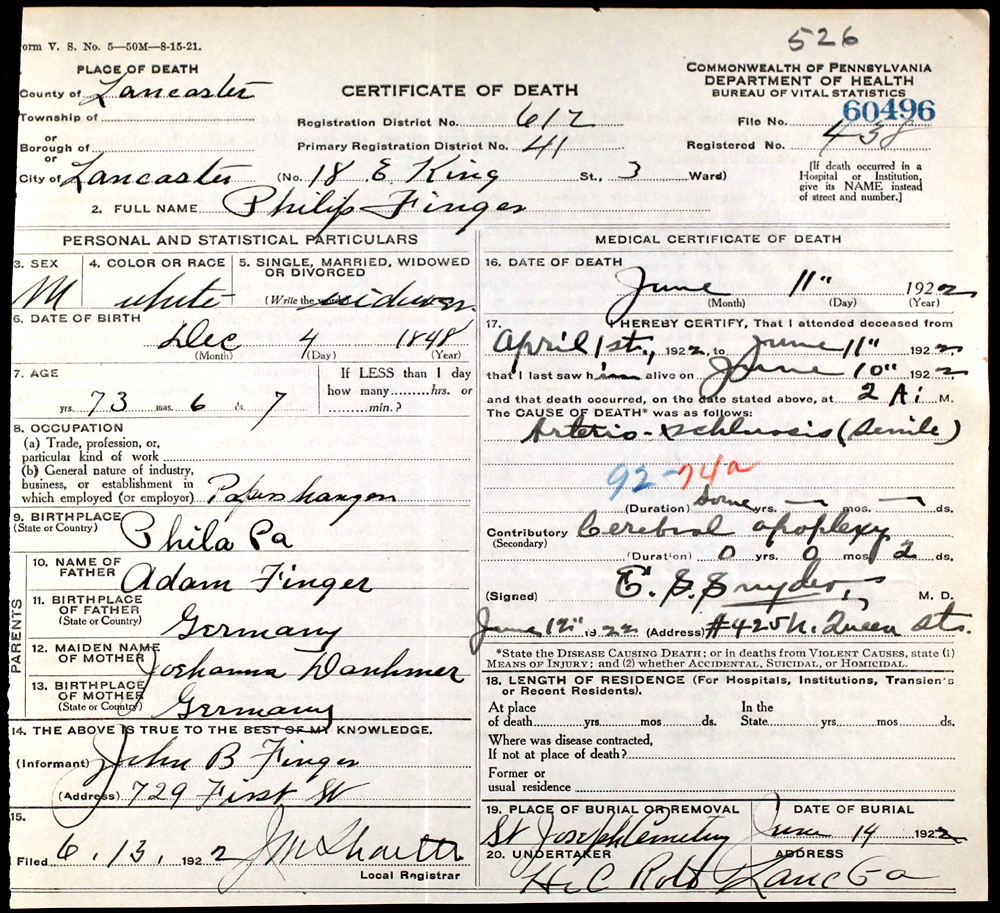 526
orm V. S. No. 5—50M—8-15-21.
PLACE OF DEATH
County of Lancaster
Township of
or
Borough of
or
City of Lancaster
CERTIFICATE OF DEATH
COMMONWEALTH OF PENNSYLVANIA
DEPARTMENT OF HEALTH
BUREAU OF VITAL STATISTICS
Registration District No. 617
File No. 60496
Primary Registration District No. 41
Registered No. 438
(No. 18 E King St., 3 Ward)
[If death occurred in a
Hospital or Institution,
give its NAME instead
of street and number.]
2. FULL NAME Philip Finger
PERSONAL AND STATISTICAL PARTICULARS
3. SEX
M
4. COLOR OR RACE
white
5. SINGLE, MARRIED, WIDOWED
OR DIVORCED
(Write the word) widower
6. DATE OF BIRTH
Dec 4 1848
(Month) (Day) (Year)
7. AGE
yrs. 73 mos. 6 ds. 7
If LESS than 1 day
how many hrs. or
min.?
8. OCCUPATION
(a) Trade, profession, or,
particular kind of work
(b) General nature of industry,
business, or establishment in
which employed (or employer) Paperhanger
9. BIRTHPLACE
(State or Country)
Phila Pa
PARENTS
10. NAME OF
FATHER Adam Finger
11. BIRTHPLACE
OF FATHER
(State or Country) Germany
12. MAIDEN NAME
OF MOTHER
13. BIRTHPLACE
OF MOTHER
(State or Country) Germany
14. THE ABOVE IS TRUE TO THE BEST OF MY KNOWLEDGE.
(Informant) John B Finger
(Address) 729 First St
15.
Filed 6, 13, 1922
Local Registrar
MEDICAL CERTIFICATE OF DEATH
16. DATE OF DEATH
June 11" 1922
(Month) (Day) (Year)
17. I HEREBY CERTIFY, That I attended deceased from
April 1st., 1922, to June 11" 1922
that I last saw him alive on June 10" 1922
and that death occurred, on the date stated above, at 2 A. M.
The CAUSE OF DEATH* was as follows:
Arterio-schlerosis (senile)
92-74a
(Duration) Some yrs. — mos. — ds.
Contributory Cerebral apoplexy
(Secondary)
(Duration) 0 yrs. 0 mos 2 ds.
(Signed) E. S. Snyder, M. D.
June 12" 1922 (Address) #425 N. Queen Sts.
*State the DISEASE CAUSING DEATH; or in deaths from VIOLENT CAUSES, state (1)
MEANS OF INJURY; and (2) whether ACCIDENTAL, SUICIDAL, or HOMICIDAL.
18. LENGTH OF RESIDENCE (For Hospitals, Institutions, Transien's
or Recent Residents).
At place
of death yrs. mos ds.
In the
State yrs. mos ds.
Where was disease contracted,
If not at place of death?
Former or
usual residence
19. PLACE OF BURIAL OR REMOVAL
St Joseph Cemetery
DATE OF BURIAL
June 14 1922
20. UNDERTAKER
ADDRESS